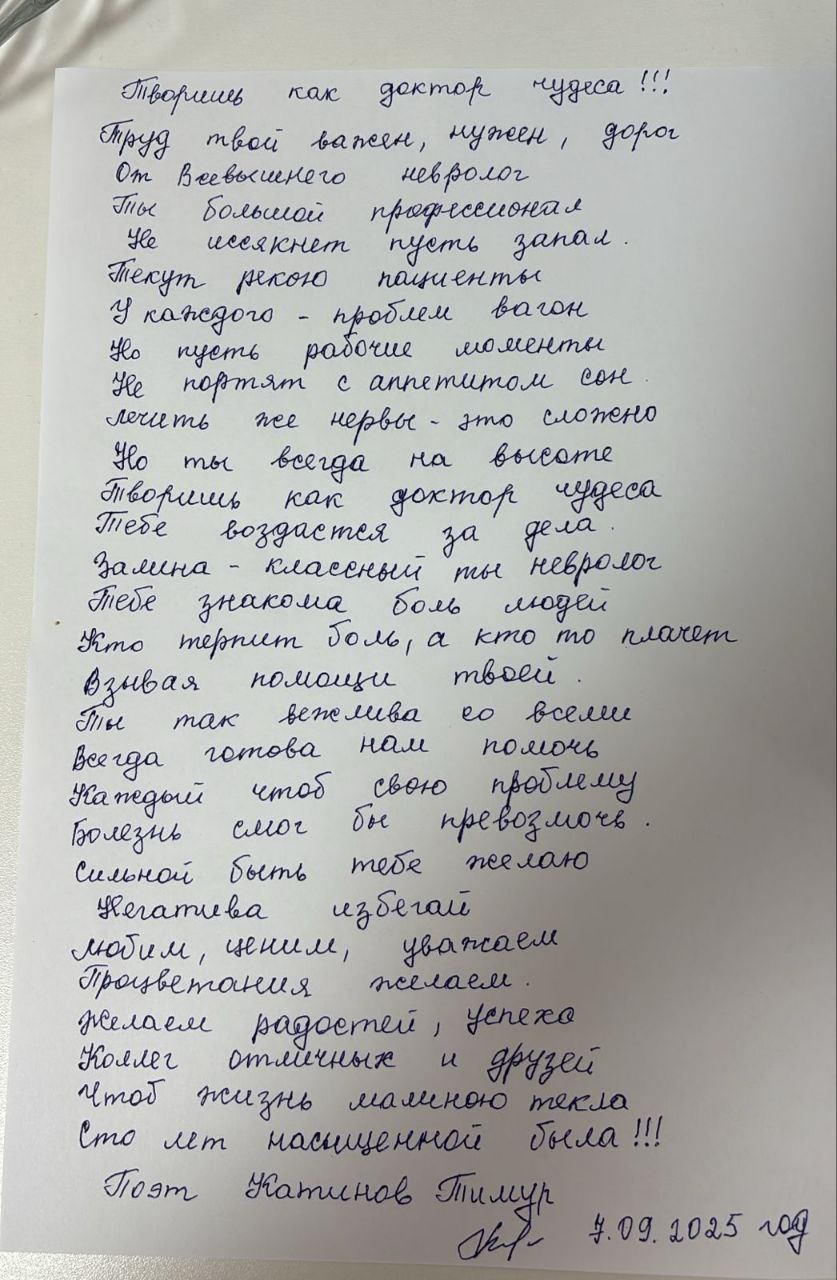 Творишь как доктор чудеса!!!
Труд твой важен, нужен, дорог
От Всевышнего невролог
Ты большой профессионал
Не иссякнет пусть запал.
Текут рекою пациенты
У каждого - проблем вагон
Но пусть рабочие моменты
Не портят с аппетитом сон.
Лечить же нервы - это сложно
Но ты всегда на высоте
Творишь как доктор чудеса
Тебе воздастся за дела.
Залина - классный ты невролог
Тебе знакома боль людей
Кто терпит боль, а кто то плачет
Взывая помощи твоей.
Ты так вежлива со всеми
Всегда готова нам помочь
Каждый чтоб свою проблему
Болезнь смог бы превозмочь.
Сильной быть тебе желаю
Негатива избегай
Любим, ценим, уважаем
Процветания желаем.
Желаем радостей, успеха
Коллег отличных и друзей
Чтоб жизнь малиною текла
Сто лет насыщенной была!!!
Поэт Катинов Тимур
7.09.2025 год